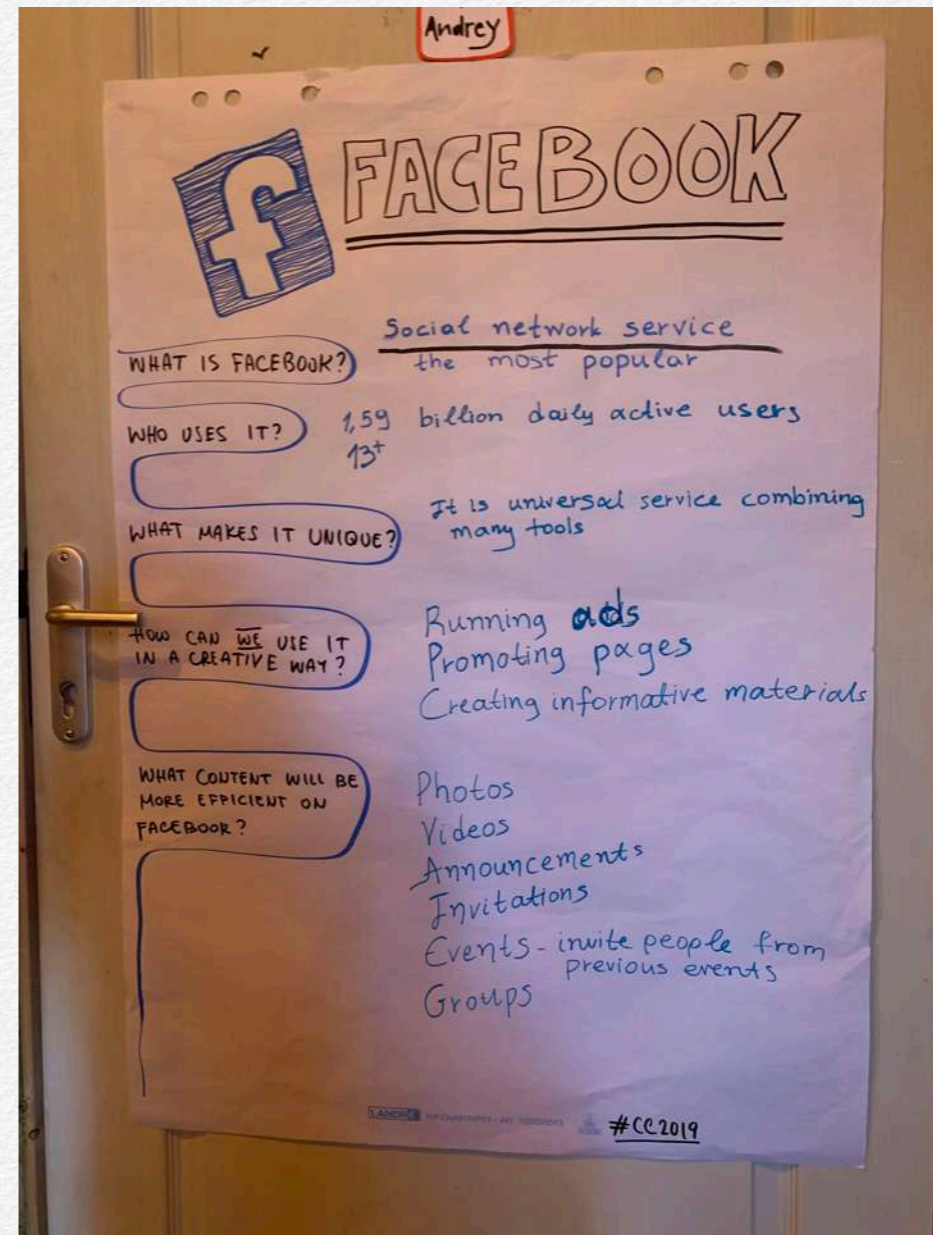 Andrey
f FACEBOOK
WHAT IS FACEBOOK?
Social network service
the most popular
WHO USES IT?
1,59 billion daily active users
13+
WHAT MAKES IT UNIQUE?
It is universal service combining
many tools
HOW CAN WE USE IT
IN A CREATIVE WAY?
Running ads
Promoting pages
Creating informative materials
WHAT CONTENT WILL BE
MORE EFFICIENT ON
FACEBOOK?
Photos
Videos
Announcements
Invitations
Events - invite people from
previous events
Groups
LANDRÉ
#CC2019